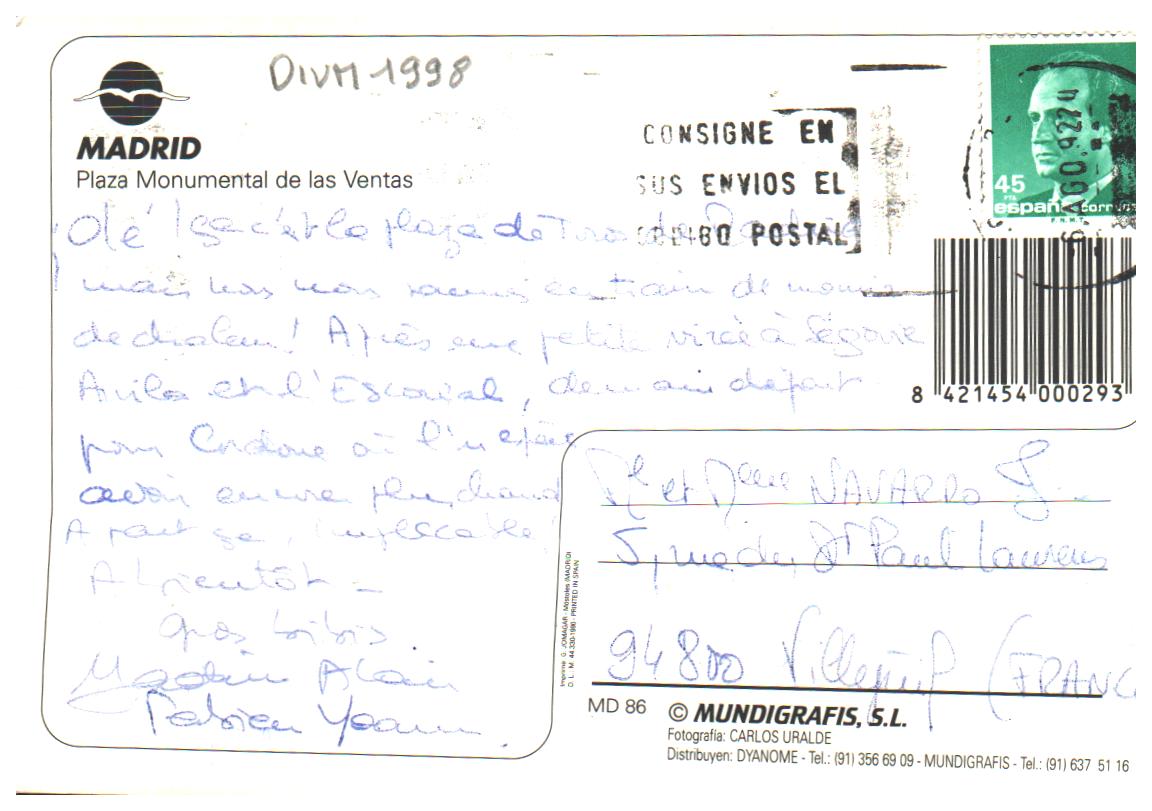 DIVM 1998
MADRID
Plaza Monumental de las Ventas
CONSIGNE EN
SUS ENVIOS EL
CODIGO POSTAL
6 AGO. 92 2
45
PTA
españa correos
F.N.M.T.
Olé ! Isa c'est la plaza de Toros de Madrid
mais nous nous sommes en train de mourir
de chaleur ! Après une petite virée à Ségovie
Avila et l'Escorial, demain départ
pour Cordoue où l'on espère
avoir encore plus chaud
A part ça, impeccable !
A bientôt -
gros bibis.
Alain
Fabien Yoann.
8 421454 000293
Mr et Mme NAVARRO J.
5, rue du Jn Paul Laurens
94800 Villejuif (FRANC
Imprime G. JOMAGAR - Móstoles (MADRID)
D. L. M. 44.330-1990 - PRINTED IN SPAIN
MD 86
© MUNDIGRAFIS, S.L.
Fotografia: CARLOS URALDE
Distribuyen: DYANOME - Tel.: (91) 356 69 09 - MUNDIGRAFIS - Tel.: (91) 637 51 16